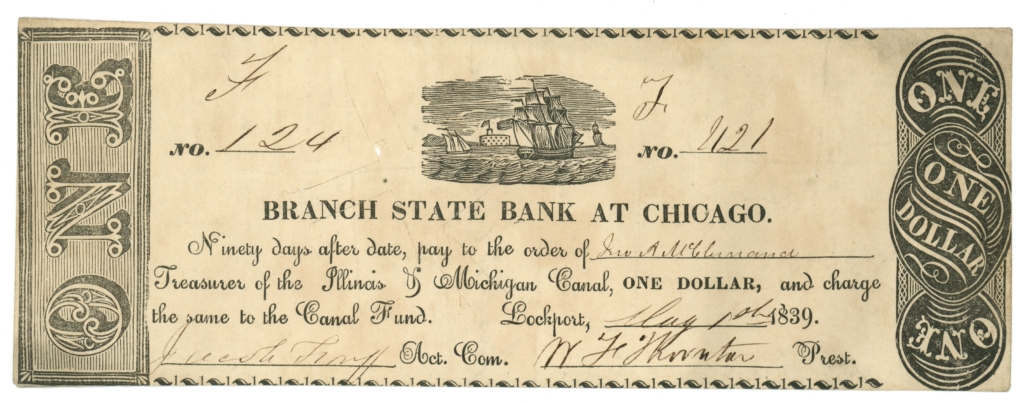 ONE
F
NO. 124
F
NO. 1121
BRANCH STATE BANK AT CHICAGO.
Ninety days after date, pay to the order of Jno A McClernand
Treasurer of the Illinois & Michigan Canal, ONE DOLLAR, and charge
the same to the Canal Fund. Lockport, May 1st 1839.
Jacob Fry Act. Com. W F Thornton Prest.
ONE
ONE DOLLAR
ONE